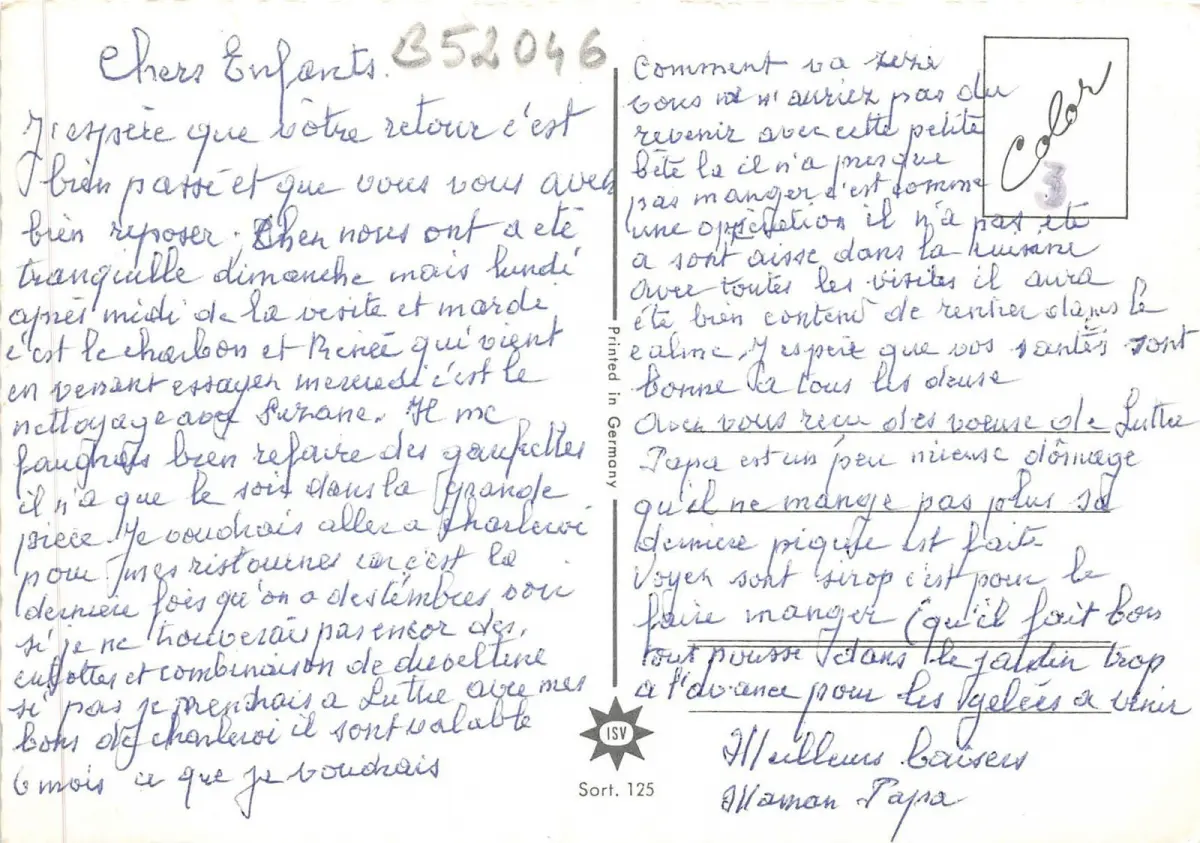 Chers Enfants. B52046
J'espère que vôtre retour c'est
bien passé et que vous vous avez
bien reposer. Chez nous ont a été
tranquille dimanche mais lundi
après midi de la visite et mardi
c'est le charbon et Renée qui vient
en venant essayer mercredi c'est le
nettoyage avec Suzane. Il me
bien refaire des gaufrettes
il n'a que le soir dans la grande
pièce. Je voudrais aller a Charleroi
pour mes ristournes car c'est la
dernière fois qu'on a des timbres voir
si je ne trouverais pas encor des
culottes et combinaison de duveltine
si pas je prendrais a Luttre avec mes
bons de charleroi il sont valable
6 mois ce que je voudrais
Comment va zezi
vous n'auriez pas du
revenir avec cette petite
bête la il n'a presque
pas manger c'est comme
une opération il n'a pas été
a sont aisse dans la cuisine
avec toutes les visites il aura
été bien content de rentrer dans le
calme. J'espère que vos santés sont
bonne a tous les deuse
Avez vous recu des voeuse de Luttre
Papa est un peu mieuse dômage
qu'il ne mange pas plus sa
derniere piqure est faite
Voyez sont sirop c'est pour le
faire manger (qu'il fait bon
tout pousse dans le jardin trop
a l'avance pour les gelées a venir
Meilleurs baisers
Maman Papa
Color
3
Printed in Germany
ISV
Sort. 125